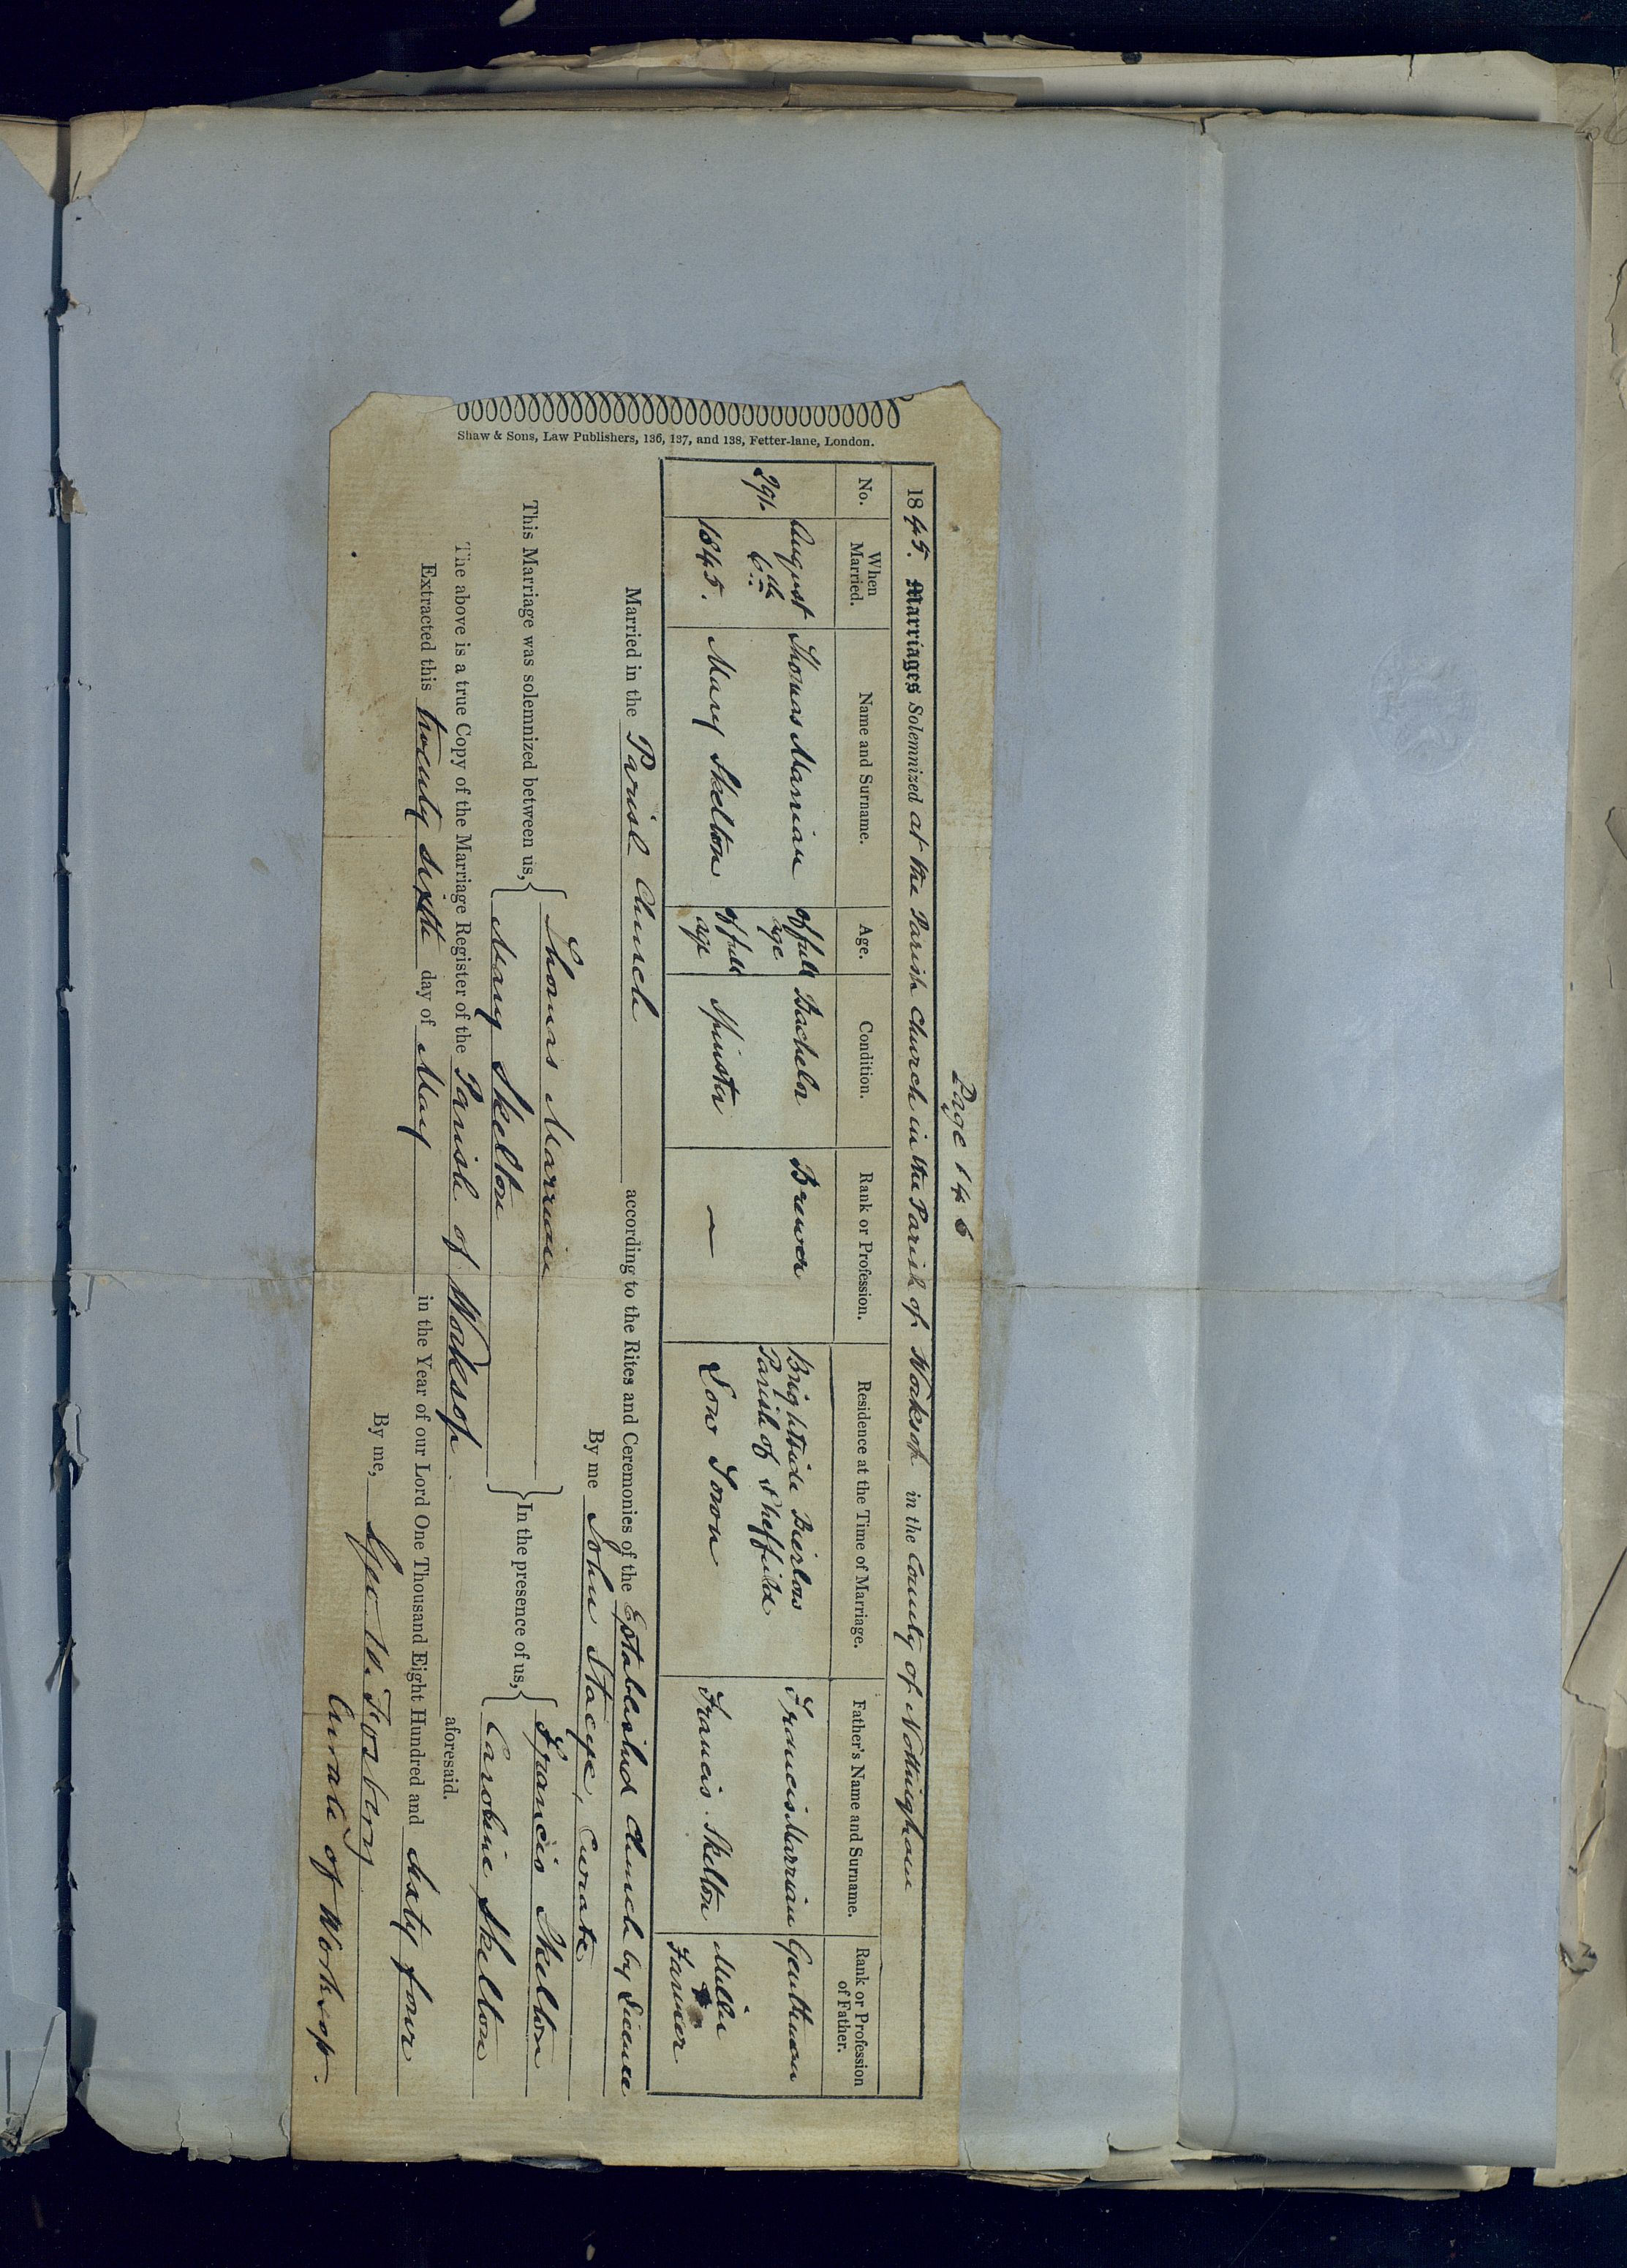 Page 146
1845. Marriages Solemnized at the Parish Church in the Parish of Worksop in the County of Nottingham
No. When Married. Name and Surname. Age. Condition. Rank or Profession. Residence at the Time of Marriage. Father's Name and Surname. Rank or Profession of Father.
291. August 6th 1845. Thomas Marrian of full age Bachelor Brewer Brightside Bierlow Parish of Sheffield Francis Marrian Gentleman
Mary Skelton of full age Spinster — Low Town Francis Skelton Miller Farmer
Married in the Parish Church according to the Rites and Ceremonies of the Established Church by Licence
By me John Stacye, Curate
This Marriage was solemnized between us, { Thomas Marrian } In the presence of us, { Francis Skelton
Mary Skelton Caroline Skelton
The above is a true Copy of the Marriage Register of the Parish of Worksop aforesaid.
Extracted this twenty sixth day of May in the Year of our Lord One Thousand Eight Hundred and Sixty four
By me, Geo W. Fosbery
Curate of Worksop.
Shaw & Sons, Law Publishers, 136, 137, and 138, Fetter-lane, London.